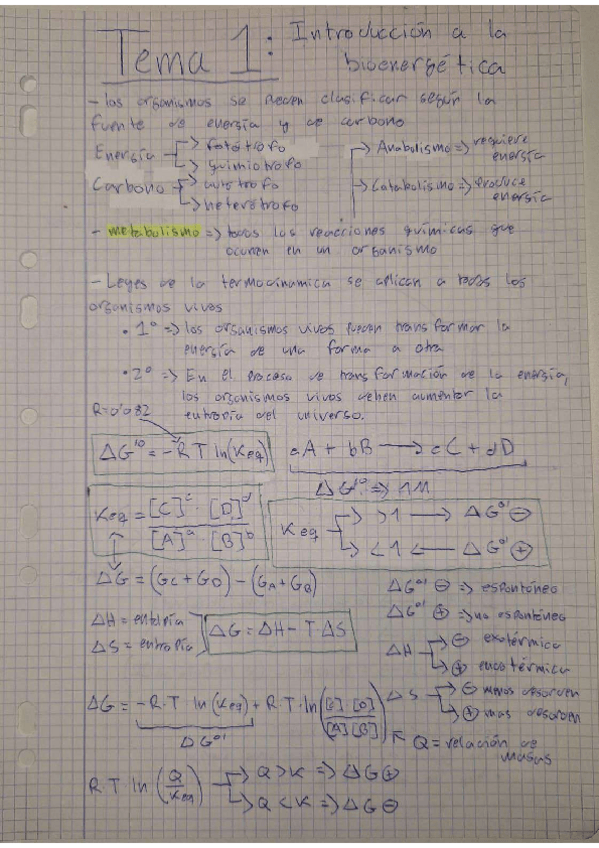 Tema 1: Introducción a la
bioenergética
- los organismos se pueden clasificar según la
fuente de energía y de carbono
Energía → fotótrofo
→ quimiotrofo
Carbono → autótrofo
→ heterótrofo
→ Anabolismo => requiere
energía
→ Catabolismo => produce
energía
- metabolismo => todas las reacciones químicas que
ocurren en un organismo
- Leyes de la termodinamica se aplican a todos los
organismos vivos
• 1º => los organismos vivos pueden transformar la
energía de una forma a otra
• 2º => En el proceso de transformación de la energía,
los organismos vivos deben aumentar la
entropía del universo.
R=0'082
ΔG'º = -R T ln(Keq)
aA + bB → cC + dD
ΔG'º => 1M
Keq = [C]^c · [D]^d / [A]^a · [B]^b
Keq → >1 → ΔGº' ⊖
→ <1 ← ΔGº' ⊕
ΔG = (GC + GD) - (GA + GB)
ΔGº' ⊖ => espontáneo
ΔGº' ⊕ => no espontáneo
ΔH = entalpía
ΔS = entropía
ΔG = ΔH - T·ΔS
ΔH → ⊖ exotérmica
→ ⊕ endotérmica
ΔS → ⊖ menos desorden
→ ⊕ mas desorden
ΔG = -R·T·ln(Keq) + R·T·ln([C]·[D] / [A][B])
ΔGº'
Q = relación de
masas
R·T·ln(Q/Keq) → Q > K => ΔG ⊕
→ Q < K => ΔG ⊖